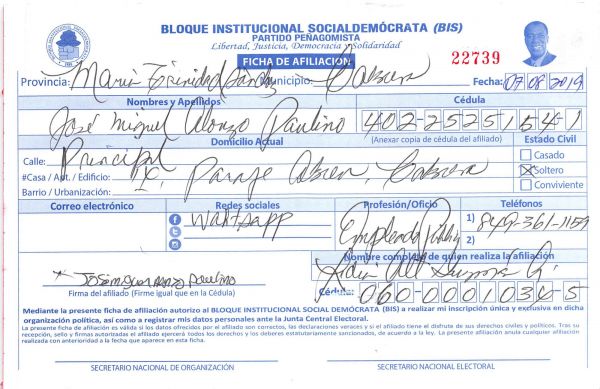 BLOQUE INSTITUCIONAL SOCIALDEMÓCRATA (BIS)
PARTIDO PEÑAGOMISTA
Libertad, Justicia, Democracia y Solidaridad
FICHA DE AFILIACIÓN
22739
Provincia: María Trinidad Sánchez Municipio: Cabrera Fecha: 07/08/2019
Nombres y Apellidos Cédula
José Miguel Alonzo Paulino 402-2525154-1
Domicilio Actual (Anexar copia de cédula del afiliado) Estado Civil
Calle: Principal
#Casa / Apt. / Edificio: Paraje Abreu, Cabrera
Barrio / Urbanización:
Casado
X Soltero
Conviviente
Correo electrónico Redes sociales Profesión/Oficio Teléfonos
Whatsapp Empleado 1) 849-361-1159
2)
Nombre completo de quien realiza la afiliación
José miguel alonzo paulino
Firma del afiliado (Firme igual que en la Cédula) Cédula: 060-0001034-5
Mediante la presente ficha de afiliación autorizo al BLOQUE INSTITUCIONAL SOCIAL DEMÓCRATA (BIS) a realizar mi inscripción única y exclusiva en dicha
organización política, así como a registrar mis datos personales ante la Junta Central Electoral.
La presente ficha de afiliación es válida si los datos ofrecidos por el afiliado son correctos, las declaraciones veraces y si el afiliado tiene el disfrute de sus derechos civiles y políticos. Tras su
recepción, sello y firmas autorizadas el afiliado ejercerá todos los derechos y los deberes estatutariamente sancionados, de acuerdo a la ley. La presente afiliación anula cualquier afiliación
realizada con anterioridad a la fecha que aparece en esta ficha.
SECRETARIO NACIONAL DE ORGANIZACIÓN SECRETARIO NACIONAL ELECTORAL